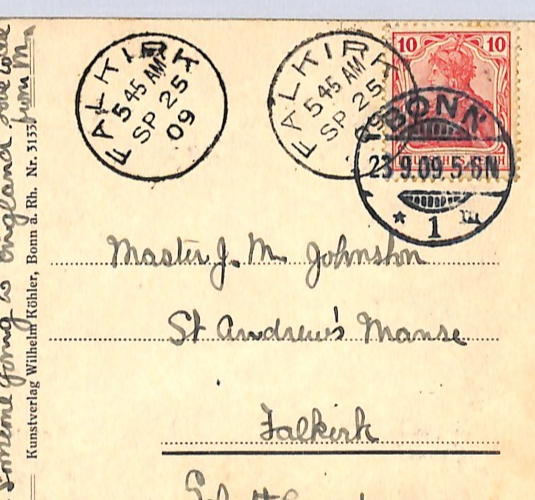 FALKIRK
5 45 AM
SP 25
09
FALKIRK
5 45 AM
SP 25
10 10
BONN
23.9.09.5-6N
* 1
Master J. M. Johnston
St Andrew's Manse
Falkirk
Kunstverlag Wilhelm Köhler, Bonn a. Rh. Nr. 3135
someone going to England. Love to
from M